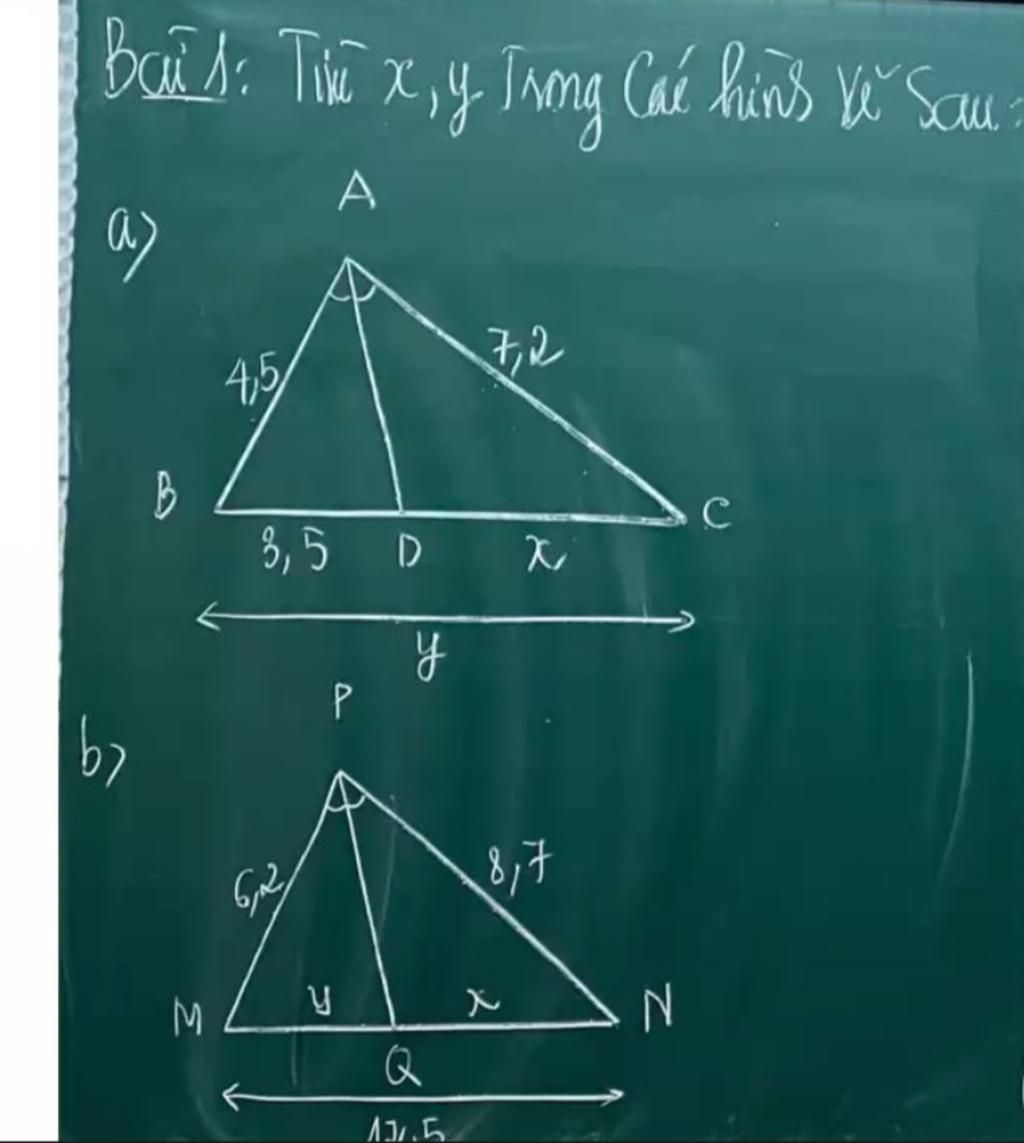 Bài 1: Tìm x, y trong các hình vẽ sau:
a)
A
4,5
7,2
B
C
3,5 D x
y
P
b)
6,2
8,7
M
y x
N
Q